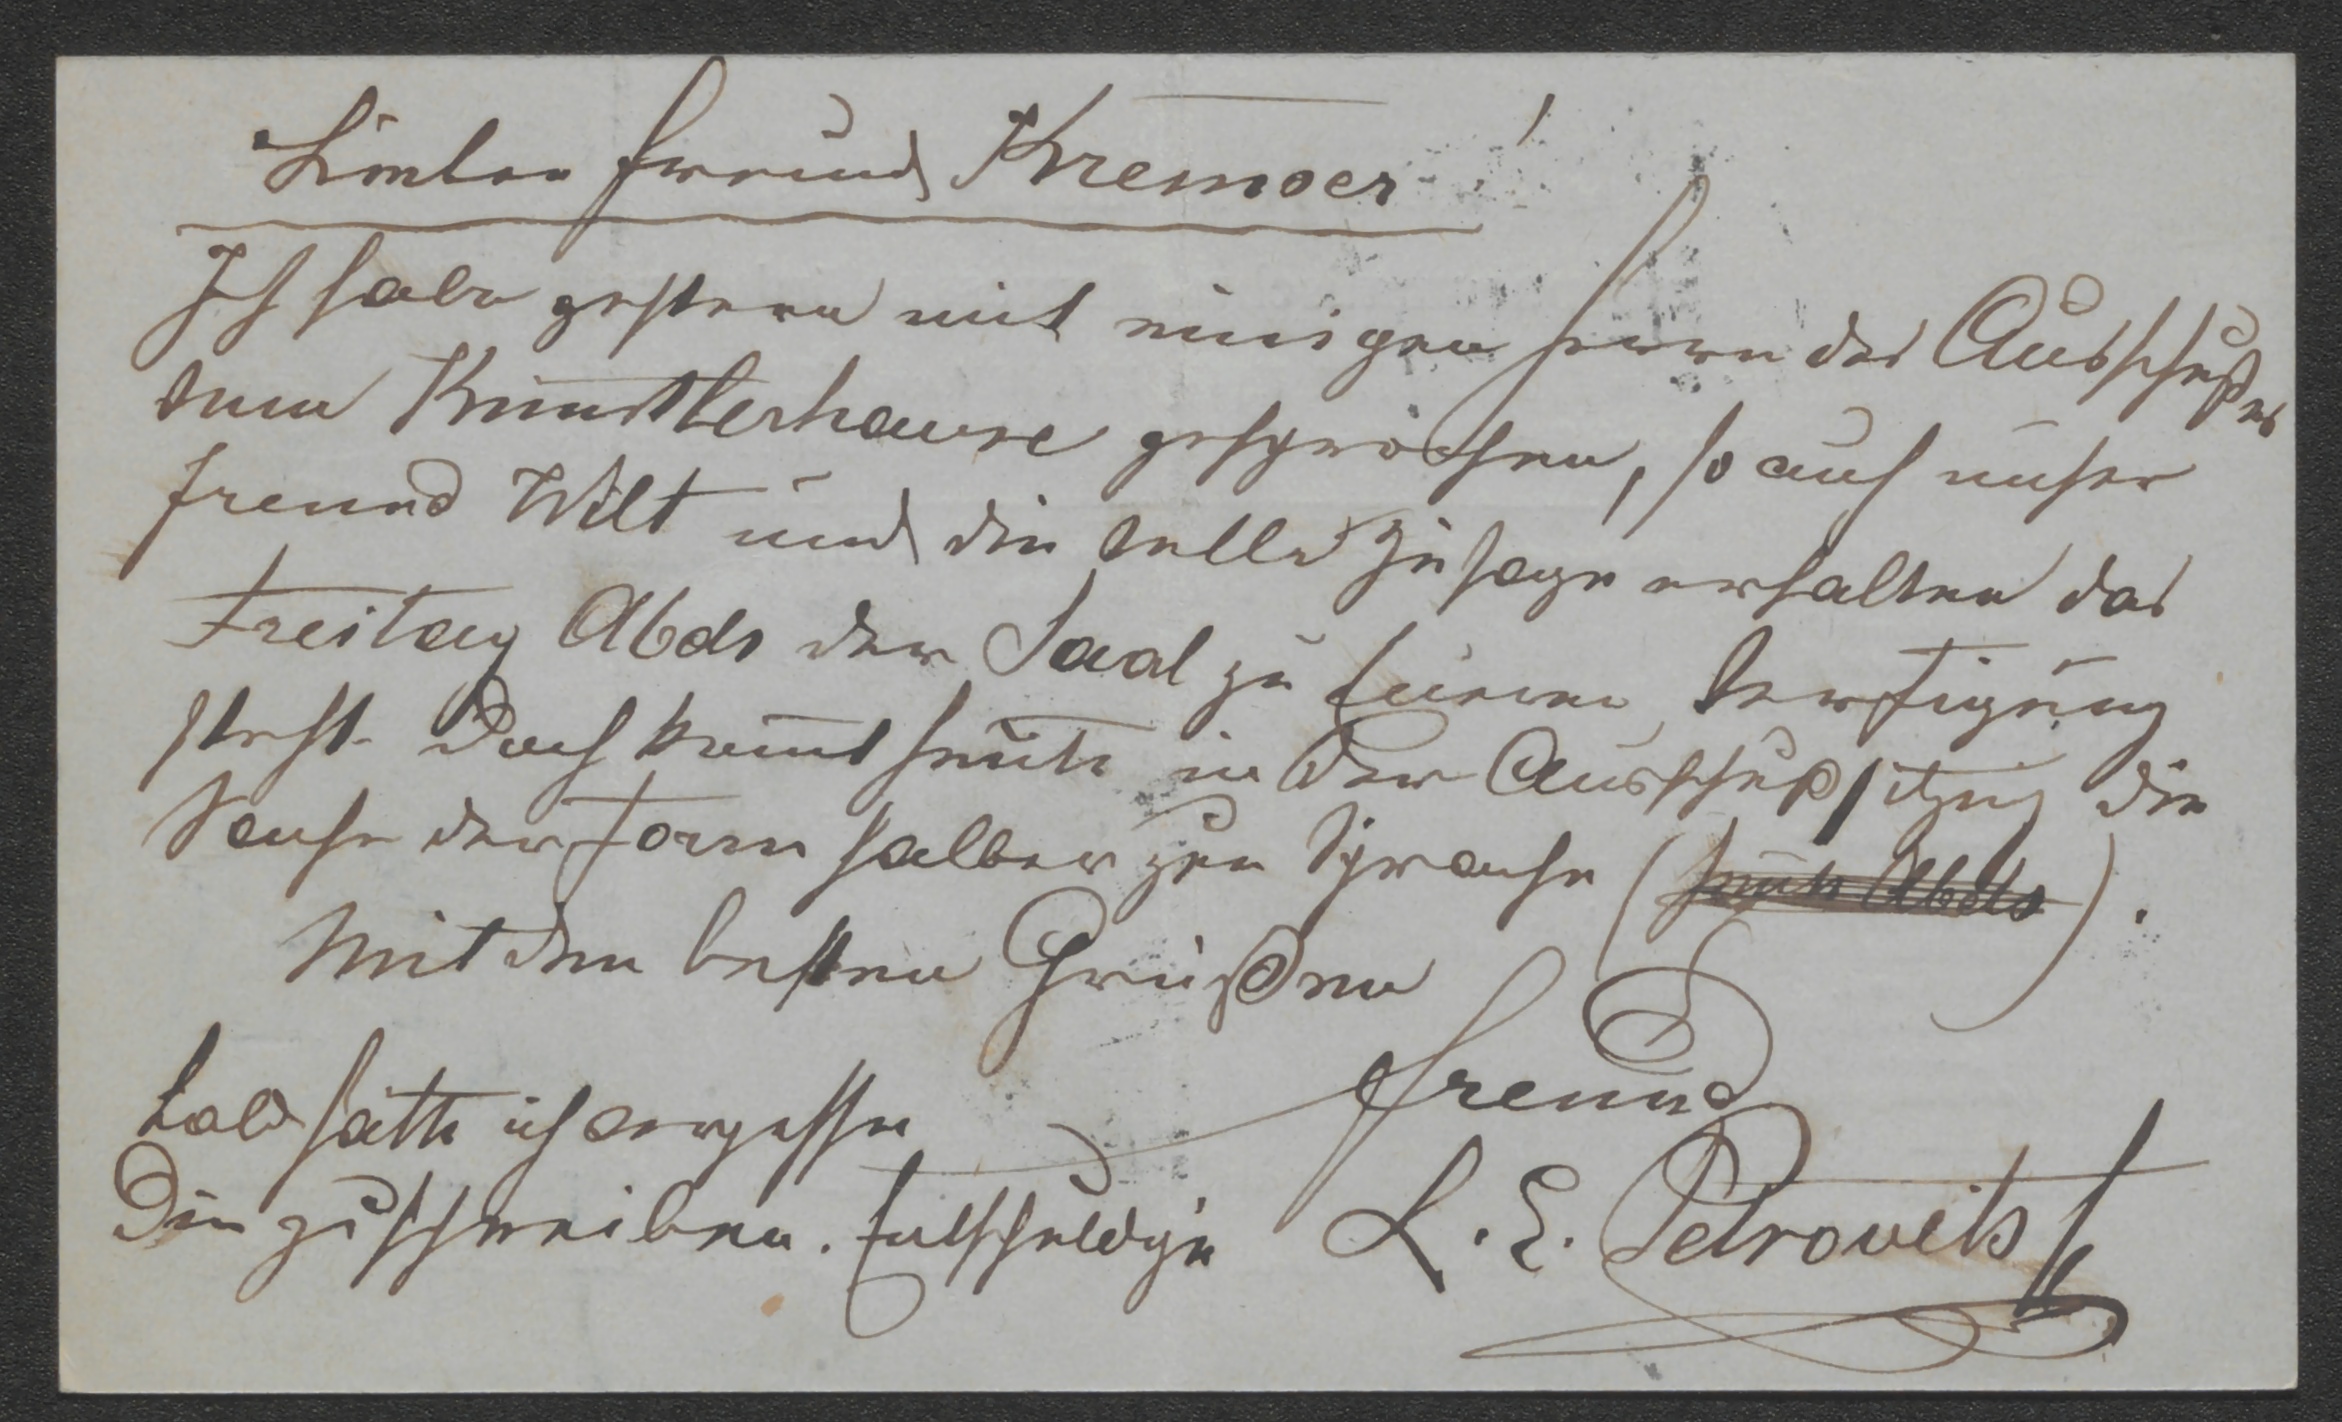 Lieber Freund Kremser!
Ich habe gestern mit einigen Herrn des Ausschußes
vom Künstlerhause gesprochen, so auch unser
Freund Wilt und die volle Zusage erhalten das
Freitag Abds der Saal zu Euerer Verfügung
steht. Doch kom̄t heute in der Ausschußsitzung die
Sache der Form halber zur Sprache (heute Abds).
Mit den besten Grüßen
Freund
L. E. Petrovits
Bald hätte ich vergessen
Dir zu schreiben. Entschuldige